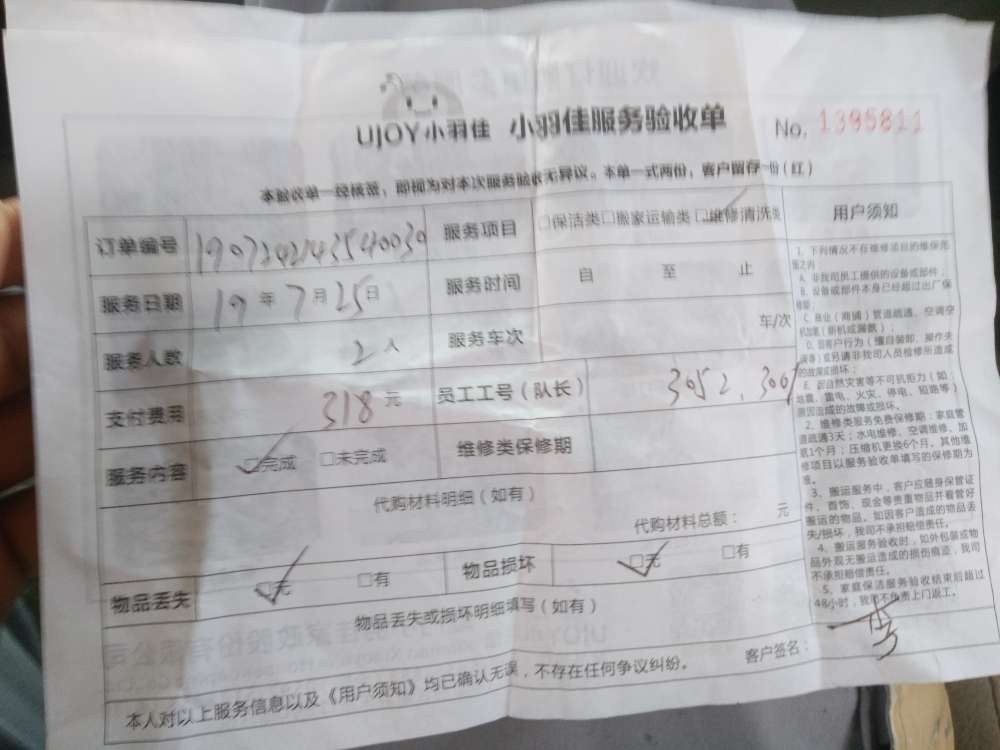 UJOY小羽佳 小羽佳服务验收单 No. 1395811
本验收单一经核签，即视为对本次服务验收无异议。本单一式两份，客户留存一份（红）
订单编号 服务项目 □保洁类□搬家运输类□维修清洗类
服务日期 19年7月25日 服务时间 自 至 止
服务人数 2人 服务车次 车/次
支付费用 318元 员工工号（队长）
服务内容 □完成 □未完成 维修类保修期
代购材料明细（如有）
代购材料总额： 元
物品丢失 □无 □有 物品损坏 □无 □有
物品丢失或损坏明细填写（如有）
本人对以上服务信息以及《用户须知》均已确认无误，不存在任何争议纠纷。 客户签名：
用户须知
1、下列情况不在维修项目的维保范
围之内
A、非我司员工提供的设备或部件；
B、设备或部件本身已经超过出厂保
修期；
C、商业（商铺）管道疏通、空调空
机加氟（新机或漏氟）；
D、因客户行为（擅自装卸、操作失
误等）或另请非我司人员检修所造成
的故障或损坏；
E、因自然灾害等不可抗拒力（如：
地震、雷电、火灾、停电、短路等）
原因造成的故障或损坏。
2、维修类服务免费保修期：家庭管
道疏通3天；水电维修、空调维修、加
氟1个月；压缩机更换6个月。其他维
修项目以服务验收单填写的保修期为
准。
3、搬运服务中，客户应随身保管证
件、首饰、现金等贵重物品并看管好
搬运的物品。如因客户造成的物品丢
失/损坏，我司不承担赔偿责任。
4、搬运服务验收时，如外包装或物
品外观无搬运造成的损伤痕迹，我司
不承担赔偿责任。
5、家庭保洁服务验收结束后超过
48小时，我司不负责上门返工。